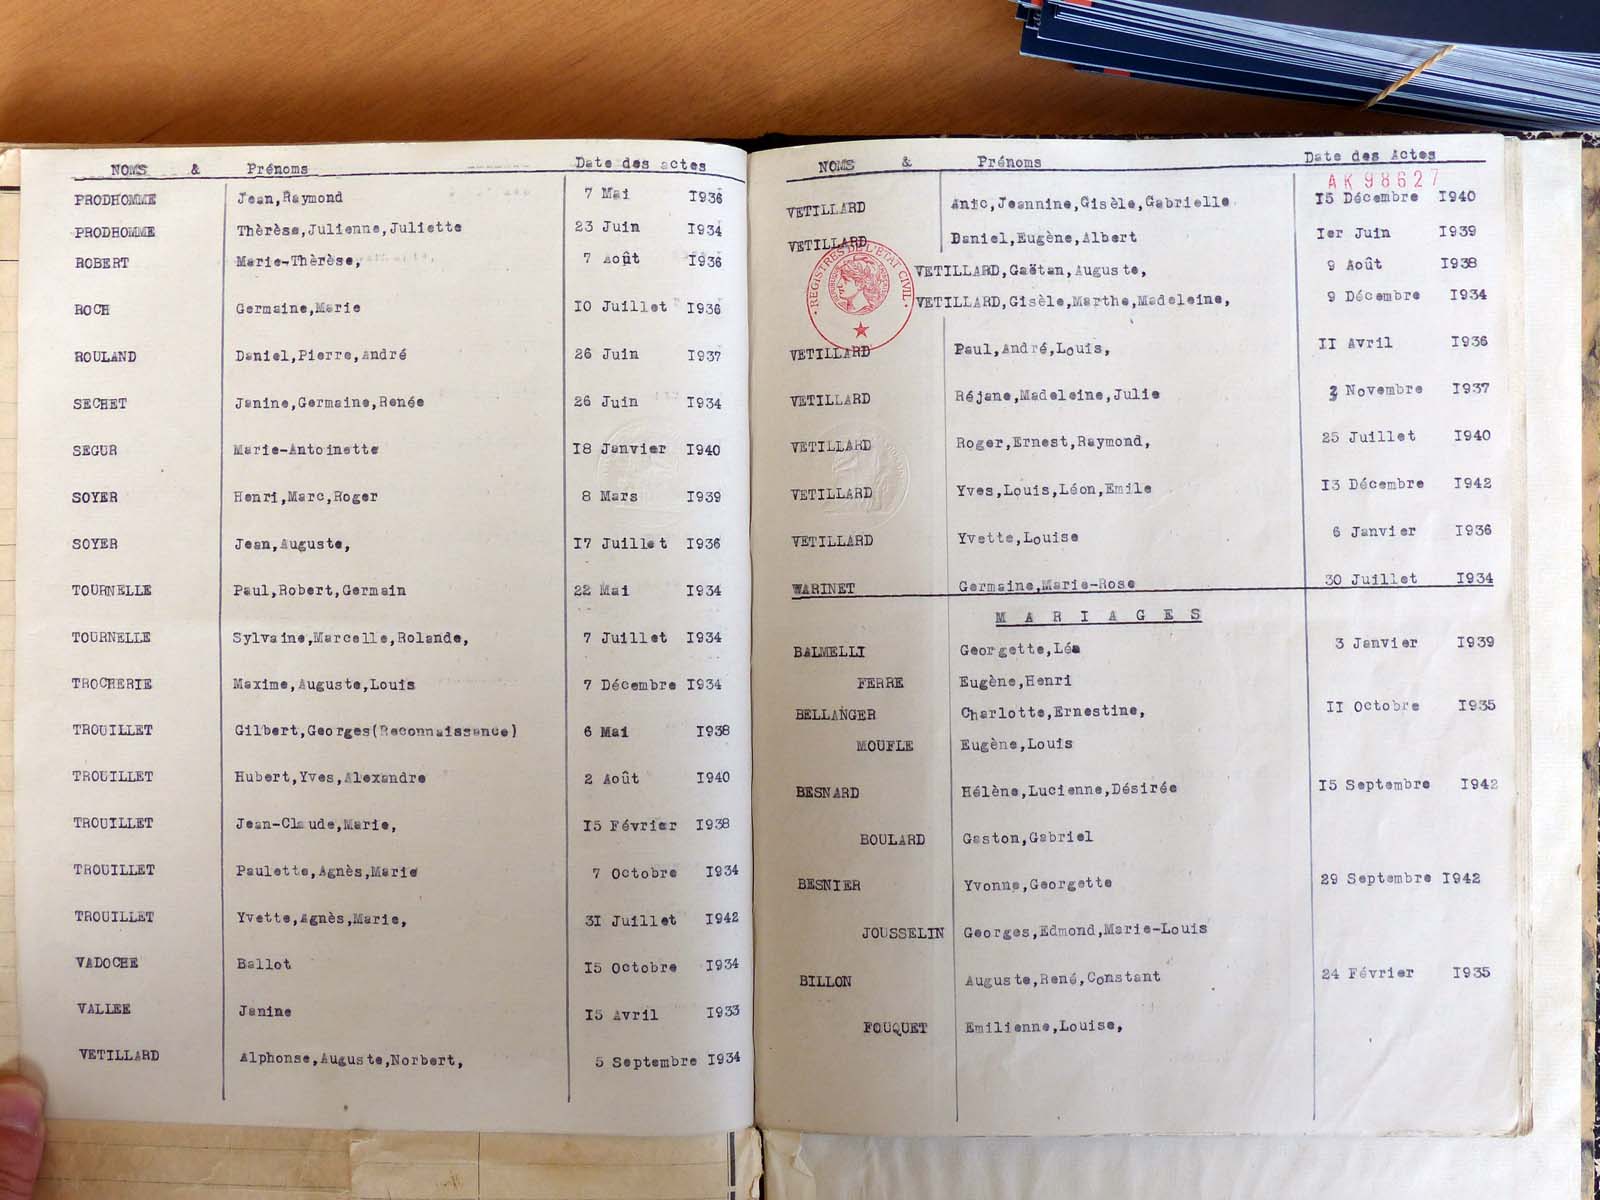 NOMS & Prénoms Date des actes
PRODHOMME Jean,Raymond 7 Mai 1936
PRODHOMME Thèrèse,Julienne,Juliette 23 Juin 1934
ROBERT Marie-Thèrèse, 7 Août 1936
ROCH Germaine,Marie 10 Juillet 1936
ROULAND Daniel,Pierre,André 26 Juin 1937
SECHET Janine,Germaine,Renée 26 Juin 1934
SEGUR Marie-Antoinette 18 Janvier 1940
SOYER Henri,Marc,Roger 8 Mars 1939
SOYER Jean,Auguste, 17 Juillet 1936
TOURNELLE Paul,Robert,Germain 22 Mai 1934
TOURNELLE Sylvaine,Marcelle,Rolande, 7 Juillet 1934
TROCHERIE Maxime,Auguste,Louis 7 Décembre 1934
TROUILLET Gilbert,Georges(Reconnaissance) 6 Mai 1938
TROUILLET Hubert,Yves,Alexandre 2 Août 1940
TROUILLET Jean-Claude,Marie, 15 Février 1938
TROUILLET Paulette,Agnès,Marie 7 Octobre 1934
TROUILLET Yvette,Agnès,Marie, 31 Juillet 1942
VADOCHE Ballot 15 Octobre 1934
VALLEE Janine 15 Avril 1933
VETILLARD Alphonse,Auguste,Norbert, 5 Septembre 1934
NOMS & Prénoms Date des Actes
AK98627
VETILLARD Anic,Jeannine,Gisèle,Gabrielle 15 Décembre 1940
VETILLARD Daniel,Eugène,Albert 1er Juin 1939
REGISTRES DE L'ETAT CIVIL
VETILLARD,Gaëtan,Auguste, 9 Août 1938
VETILLARD,Gisèle,Marthe,Madeleine, 9 Décembre 1934
VETILLARD Paul,André,Louis, 11 Avril 1936
VETILLARD Réjane,Madeleine,Julie Novembre 1937
VETILLARD Roger,Ernest,Raymond, 25 Juillet 1940
VETILLARD Yves,Louis,Léon,Emile 13 Décembre 1942
VETILLARD Yvette,Louise 6 Janvier 1936
WARINET Germaine,Marie-Rose 30 Juillet 1934
M A R I A G E S
BALMELLI Georgette,Léa 3 Janvier 1939
FERRE Eugène,Henri
BELLANGER Charlotte,Ernestine, 11 Octobre 1935
MOUFLE Eugène,Louis
BESNARD Hélène,Lucienne,Désirée 15 Septembre 1942
BOULARD Gaston,Gabriel
BESNIER Yvonne,Georgette 29 Septembre 1942
JOUSSELIN Georges,Edmond,Marie-Louis
BILLON Auguste,René,Constant 24 Février 1935
FOUQUET Emilienne,Louise,